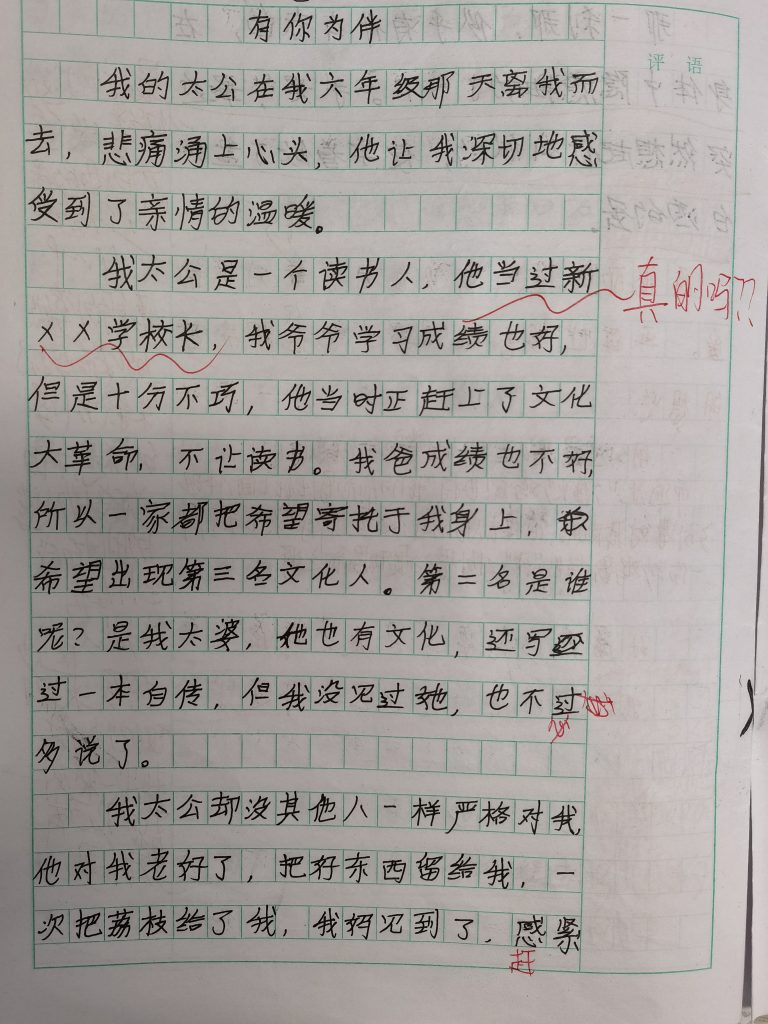 有你为伴
评语
我的太公在我六年级那天离我而
去，悲痛涌上心头，他让我深切地感
受到了亲情的温暖。
我太公是一个读书人，他当过新
真的吗??
××学校长，我爷爷学习成绩也好，
但是十分不巧，他当时正赶上了文化
大革命，不让读书。我爸成绩也不好，
所以一家都把希望寄托于我身上，
希望出现第三名文化人。第二名是谁
呢？是我太婆，她也有文化，还写
过一本自传，但我没见过她，也不过
多说了。
我太公却没其他人一样严格对我，
他对我老好了，把好东西留给我，一
次把荔枝给了我，我妈见到了，感紧
赶